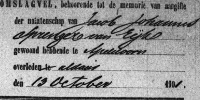 OMSLAGVEL, behoorende tot de memorie van aangifte
der nalatenschap van Jacob Johannes
Sprenger van Eijk
gewoond hebbende te Apeldoorn
overleden te aldaar
den 13 October 190